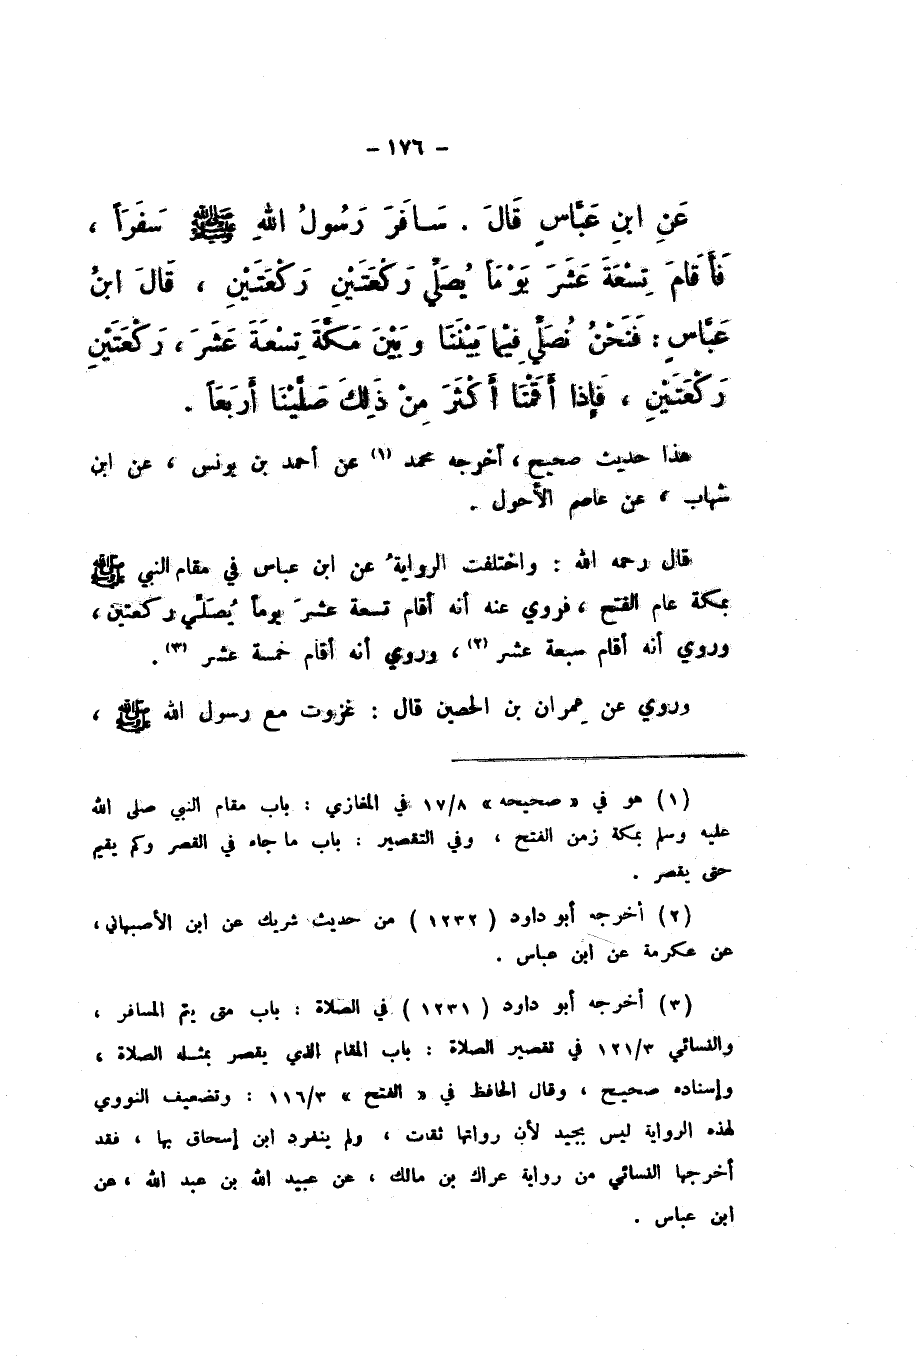 - ١٧٦ -
عَنِ ابنِ عَبَّاسٍ قَالَ . سَافَرَ رَسُولُ اللهِ ﷺ سَفَرَاً ،
فَأَقَامَ تِسْعَةَ عَشَرَ يَوْمَاً يُصَلِّي رَكْعَتَيْنِ رَكْعَتَيْنِ ، قَالَ ابنُ
عَبَّاسٍ : فَنَحْنُ نُصَلِّي فِيْمَا بَيْنَنَا وبَيْنَ مَكَّةَ تِسْعَةَ عَشَرَ ، رَكْعَتَيْنِ
رَكْعَتَيْنِ ، فَإِذا أَقَمْنَا أَكْثَرَ مِنْ ذَلِكَ صَلَّيْنَا أَرْبَعَاً .
هذا حديث صحيح ، أخرجه محمد (١) عن أحمد بن يونس ، عن ابن
شهاب ، عن عاصم الأحول .
قال رحمه الله : واختلفت الروايةُ عن ابن عباس في مقام النبي ﷺ
بمكة عام الفتح ، فروي عنه أنه أقام تسعة عشرَ يوماً يُصلّي ركعتين ،
وروي أنه أقام سبعة عشر (٢) ، وروي أنه أقام خمسة عشر (٣) .
وروي عن عِمران بن الحصين قال : غزوت مع رسول الله ﷺ ،
(١) هو في « صحيحه » ١٧/٨ في المغازي : باب مقام النبي صلى الله
عليه وسلم بمكة زمن الفتح ، وفي التقصير : باب ما جاء في القصر وكم يقيم
حتى يقصر .
(٢) أخرجه أبو داود ( ١٢٣٢ ) من حديث شريك عن ابن الأصبهاني ،
عن عكرمة عن ابن عباس .
(٣) أخرجه أبو داود ( ١٢٣١ ) في الصلاة : باب متى يتم المسافر ،
والنسائي ١٢١/٣ في تقصير الصلاة : باب المقام الذي يقصر بمثله الصلاة ،
وإسناده صحيح ، وقال الحافظ في « الفتح » ١١٦/٣ : وتضعيف النووي
لهذه الرواية ليس بجيد لأن رواتها ثقت ، ولم ينفرد ابن إسحاق بها ، فقد
أخرجها النسائي من رواية عراك بن مالك ، عن عبيد الله بن عبد الله ، عن
ابن عباس .